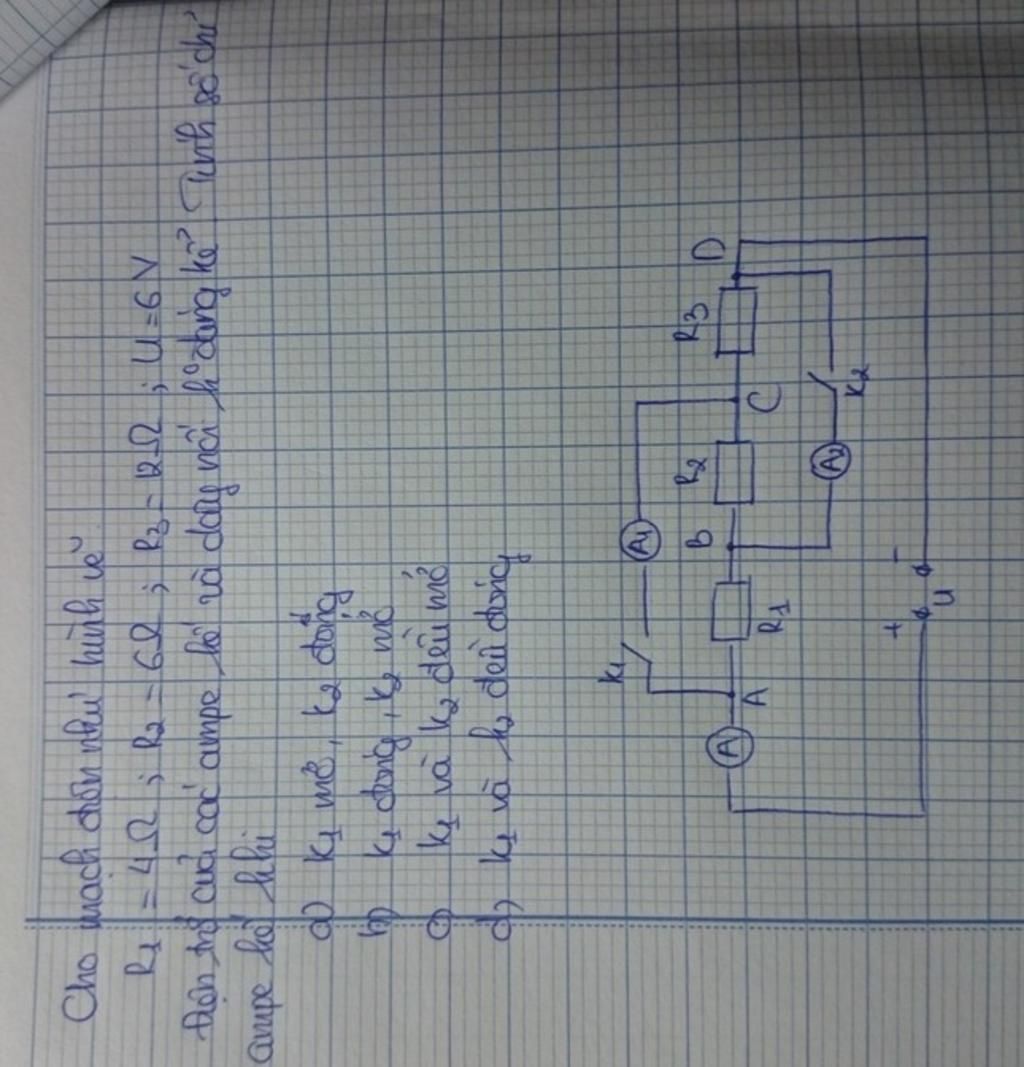 Cho mạch điện như hình vẽ
R1 = 4Ω ; R2 = 6Ω ; R3 = 12Ω ; U = 6V
Điện trở của các ampe kế và dây nối k° đáng kể Tính số chỉ
ampe kế khi
a) K1 mở, K2 đóng
b) K1 đóng, K2 mở
c) K1 và K2 đều mở
d) K1 và K2 đều đóng
K1 A1
A A R1 B R2 C R3 D
A2 K2
+ -
U